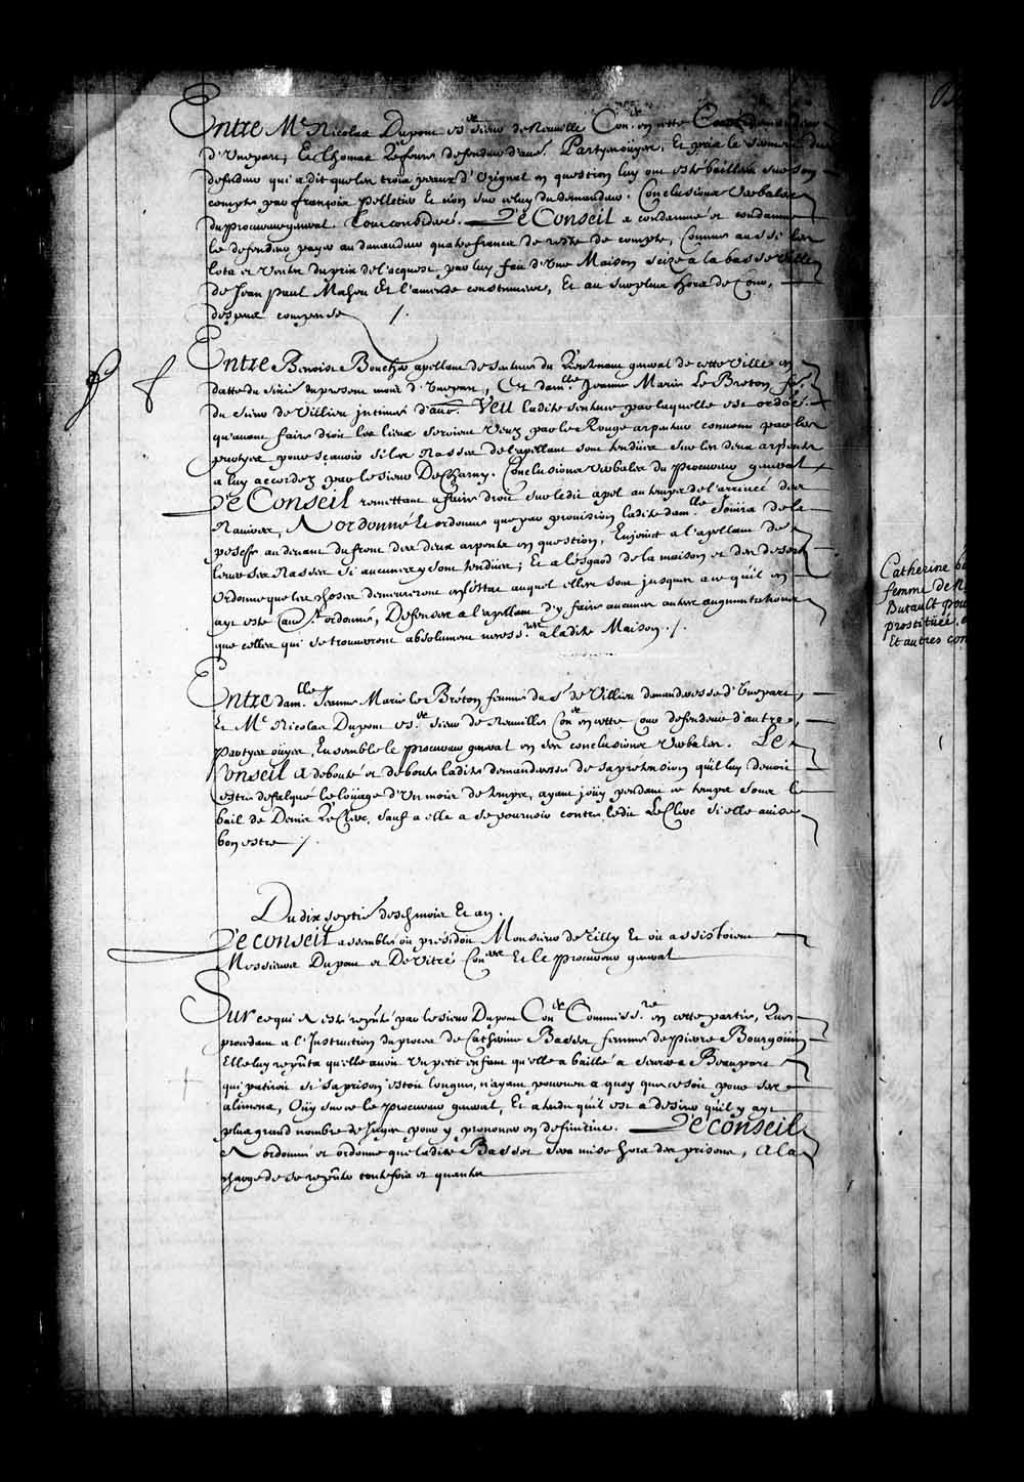 Entre Me Nicolas Dupont esr sieur de Neuville Conr en cette Cour demandeur
d'Unepart, Et Thomas Lefevre defendeur d'autre. Partyes oüyes, Et apres le serment du
defendeur qui a dit que les trois peaux d'Orignal en question luy ont esté baillées sur son
compte par françois pelletier Et non sur celuy du demandeur. Conclusions Verbales
du procureur general. Tout considéré. Le Conseil a condamné et condamne
le defendeur payer au demandeur quatre francs de reste de compte, Comme aussi les
lots et ventes du prix de l'acquest par luy fait d'Une Maison scize a la basse Ville
de Jean paul Maheu Et l'amende coustumiere, Et au surplus hors de Cour,
despens compensés /.
Entre Benoist Boucher apellant de sentence du Lieutenant general de cette Ville en
datte du sixie du present mois d'Unepart, Et damlle Jeanne Marie Le Breton fe
du sieur de Villieu intimée d'autre. Veu ladite sentence par laquelle est ordonné
qu'avant faire droit les lieux seroient Veus par le Rouge arpenteur convenu par les
partyes pour sçavoir si les Nasses de l'apellant sont tendües sur les deux arpents
a luy accordez par le sieur DeCharny. Conclusions verbales du procureur general
Le Conseil remettant a faire droit sur ledit apel au temps de l'arrivée des
Navires, A ordonné Et ordonne que par provision ladite damlle Joüira de la
pesche au devant du front des deux arpents en question, Enjoinct a l'apellant de
lever ses Nasses si aucunes y sont tendües; Et a l'esgard de la maison et des deserts
Ordonne que les choses demeureront en l'estat auquel elles sont jusques a ce qu'il en
ayt esté autrement ordonné, Defenses a l'apellant d'y faire aucunes autres augmentations
que celles qui se trouveront absolument necessres a ladite Maison ./.
Entre damlle Jeanne Marie le Bréton femme du Sr de Villieu demanderesse d'Unepart,
Et Me Nicolas Dupont esr sieur de Neuville Conr en cette Cour defendeur d'autre,
Partyes oüyes, Ensemble le procureur general en ses conclusions Verbales. Le
Conseil A debouté et deboute ladite demanderesse de sa pretension qu'il luy devoit
estre defalqué le loüage d'Un mois de temps, ayant joüy pendant ce temps sous le
bail de Denis LeClerc, sauf a elle a se pourvoir contre ledit LeClerc si elle avise
bon estre /.
Du dix septie desd mois Et an.
Le conseil assemblé où présidoit Monsieur de Tilly Et où assistoient
Messieurs Dupont et De Vitré Coners Et le procureur general
Sur ce qui A esté repnté par le sieur Dupont Coner Commissre en cette partie, Que
procedant a l'Instruction du proces de Catherine Basset femme de pierre Bourgoüin
Elle luy repnta qu'elle avoit Un petit enfant qu'elle a baillé a sevrer a Beauport
qui patiroit si sa prison estoit longue, n'ayant pouvoir a quoy que ce soit pour ses
alimens, Oüy sur ce le procureur general, Et attendu qu'il est a desirer qu'il y ayt
plus grand nombre de Juges pour y prononcer en definitive. Le conseil
A ordonné et ordonne que ladite Basset sera mise hors des prisons, a la
charge de se repnter toutesfois et quantes
Catherine
femme de
Butault pour
prostituée
Et autres con